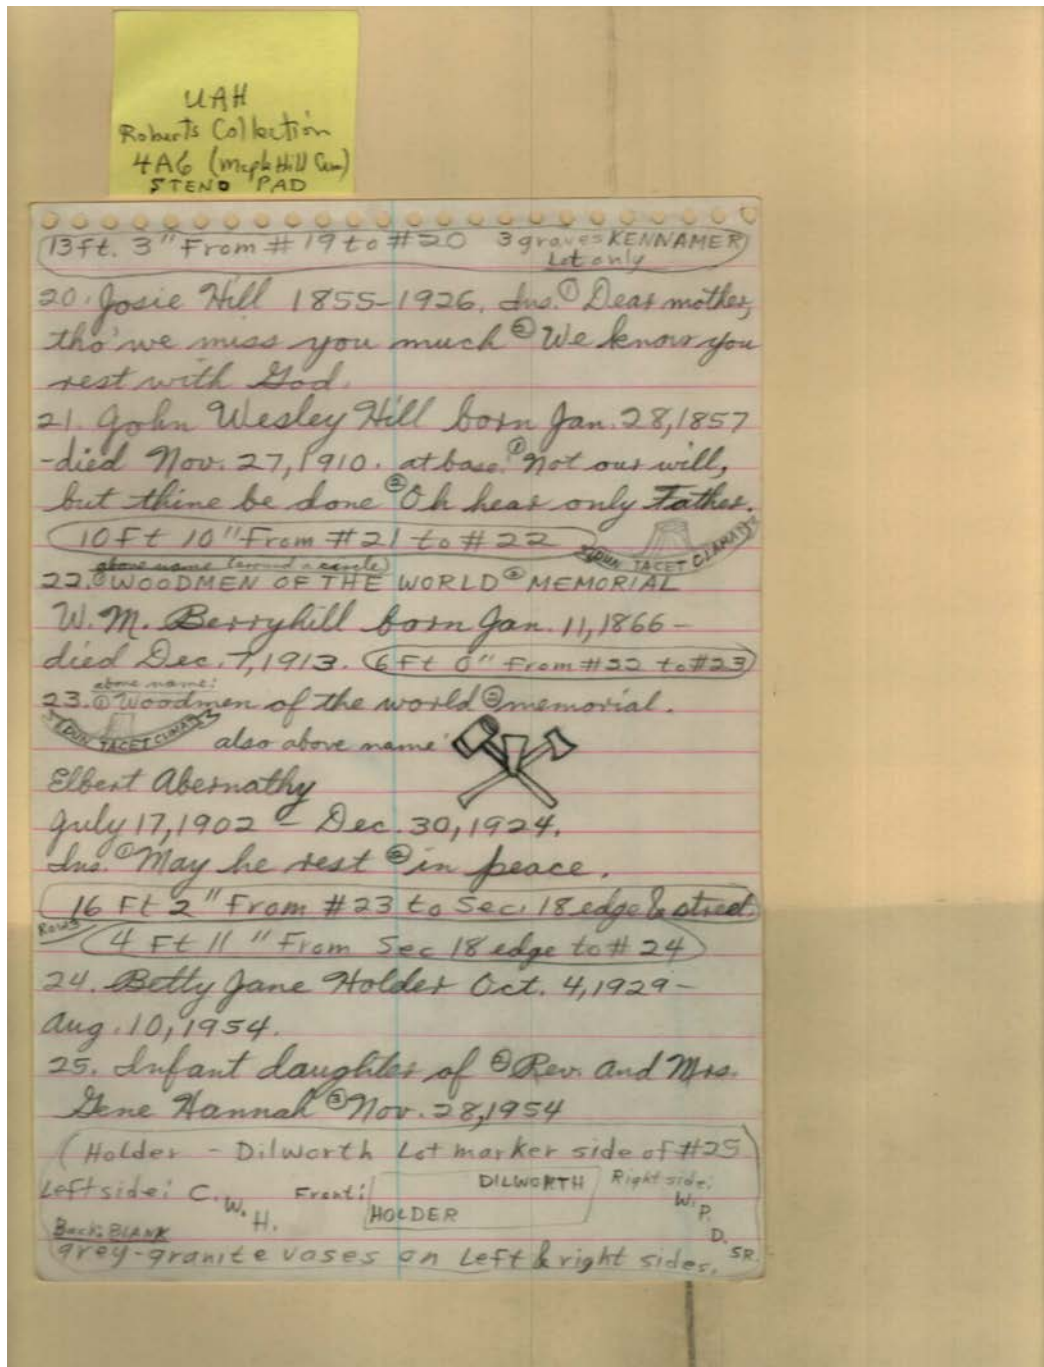 UAH
Roberts Collection
4A6 (Maple Hill Cem)
STENO PAD
13 ft. 3" From # 19 to #20 3 graves KENNAMER
Lot only
20. Josie Hill 1855-1926. Ins. ① Dear mother,
tho' we miss you much ② We know you
rest with God.
21. John Wesley Hill born Jan. 28, 1857
-died Nov. 27, 1910. at base: ① Not our will,
but thine be done ② Oh hear only Father.
10 Ft 10" From #21 to #22
DUM TACET CLAMAT
above name (around a circle)
22. ① WOODMEN OF THE WORLD ② MEMORIAL
W. M. Berryhill born Jan. 11, 1866 -
died Dec. 7, 1913. 6 Ft 0" From #22 to #23
above name:
23. ① Woodmen of the world ② memorial.
DUM TACET CLAMAT
also above name:
Elbert Abernathy
July 17, 1902 - Dec. 30, 1924.
Ins. ① May he rest ② in peace.
16 Ft 2" From #23 to Sec. 18 edge & street.
Row 3
4 Ft 11" From Sec 18 edge to # 24
24. Betty Jane Holder Oct. 4, 1929 -
Aug. 10, 1954.
25. Infant daughter of ② Rev. and Mrs.
Gene Hannah ③ Nov. 28, 1954
(Holder - Dilworth Lot marker side of #25
Left side: C. W. H. Front: DILWORTH HOLDER Right side: W. P. D. SR.
Back: BLANK
grey-granite vases on Left & right sides.